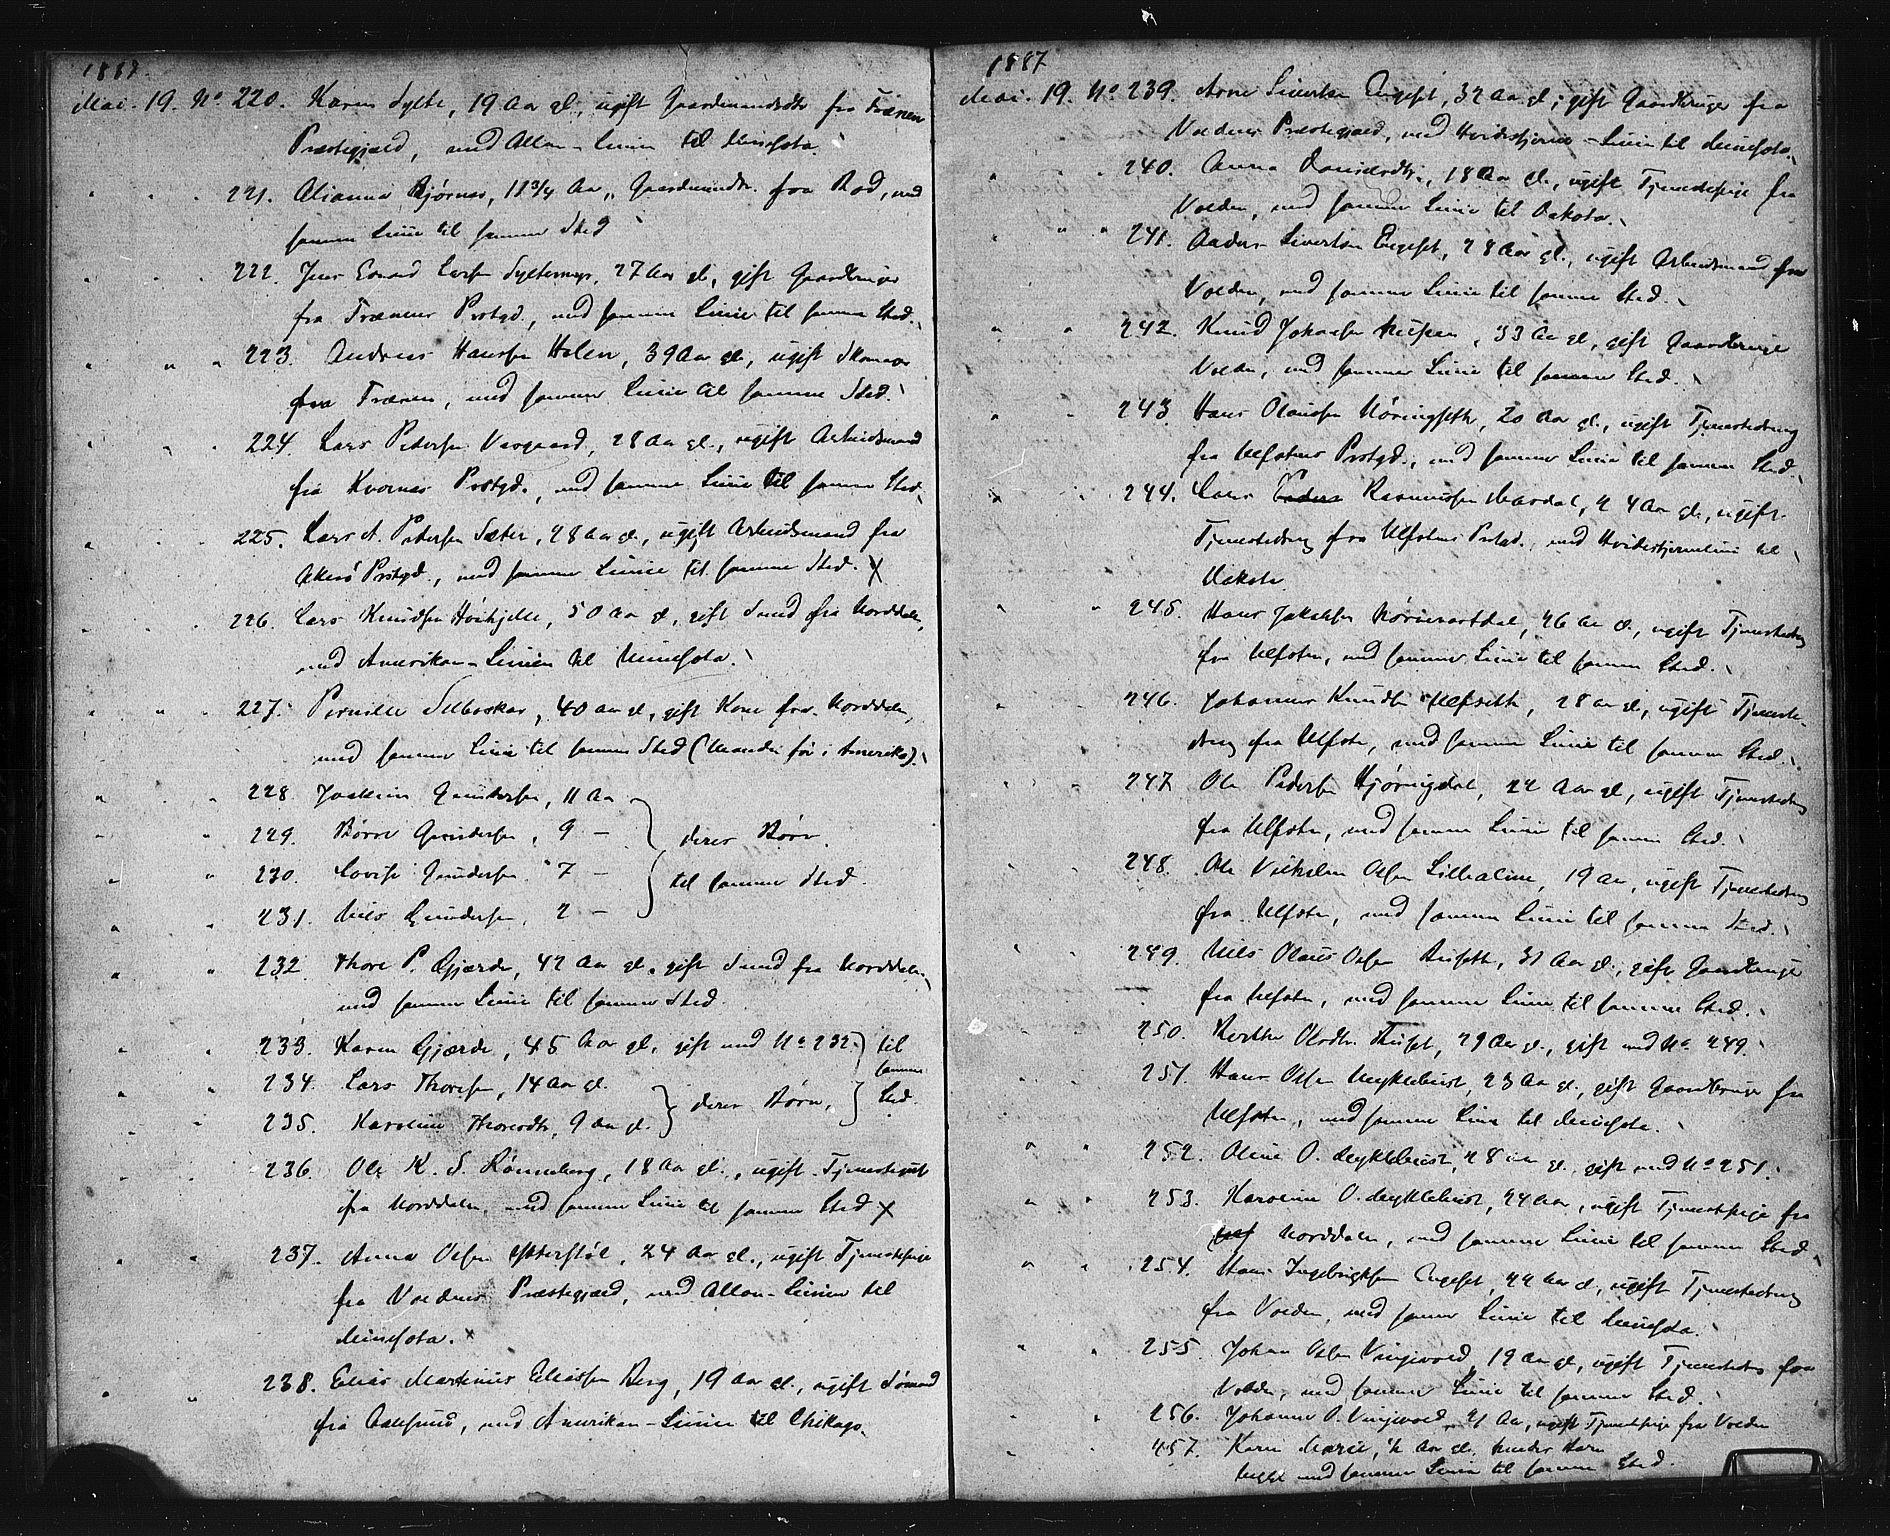 1887.
Mai. 19. No. 220. Karen Sylte, 19 Aar gl., ugift Gaardmandsdtr fra Frænen
Præstegjæld, med Allan-Linien til Minesota.
221. Bjørnes, 18 3/4 Aar, fra Bod, med
samme Linie til samme Sted
222. Jens Syltemyr, 27 Aar gl., gift Gaardbruger
fra Frænens Prstgd., med samme Linie til samme Sted.
223. Andreas Hansen Holen, 39 Aar gl., ugift
fra Frænen, med samme Linie til samme Sted.
224. Lars Pedersen 28 Aar gl., ugift Arbeidsmand
fra Kvernæs Prstgd., med samme Linie til samme Sted.
225. Lars A. Pedersen Sæter, 28 Aar gl., ugift Arbeidsmand fra
Akerø Prstgd., med samme Linie til samme Sted. X
226. Lars Knudsen 50 Aar gl., gift Smed fra Norddalen,
med Amerikan-Linien til Minesota.
227. Pernille Selboskar, 40 Aar gl., gift Kone fra Norddalen,
med samme Linie til samme Sted (Manden før i Amerika).
228. Gundersen, 11 Aar
229. Børre Gundersen, 9 — deres Børn.
230. Lovise Gundersen, 7 — til samme Sted.
231. Nils Gundersen, 2 —
232. Thore P. Gjærde, 42 Aar gl., gift Smed fra Norddalen,
med samme Linie til samme Sted.
233. Karen Gjærde, 45 Aar gl., gift med No. 232. til
234. Lars Thoresen, 14 Aar gl. samme
235. Karoline Thoresdtr, 9 Aar gl. deres Børn, Sted.
236. Ole K. S. Rønneberg, 18 Aar gl., ugift
fra Norddalen, med samme Linie til samme Sted X
237. Anna Olsen 24 Aar gl., ugift Tjenestepige
fra Voldens Præstegjæld, med Allan-Linien til
Minesota. x
238. Elias Martinus Eliassen Berg, 19 Aar gl., ugift Sømand
fra Aalesund, med Amerikan-Linien til Chikago.
1887
Mai. 19. No. 239. Arne Sivertsen Engeset, 32 Aar gl., gift Gaardbruger fra
Voldens Præstegjæld, med Hvidestjerne-Linie til Minesota.
240. Anna 18 Aar gl., ugift Tjenestepige fra
Volden, med samme Linie til Dakota.
241. Anders Sivertsen Engeset, 28 Aar gl., ugift Arbeidsmand fra
Volden, med samme Linie til samme Sted.
242. Knud Johansen 33 Aar gl., gift Gaardbruger
Volden, med samme Linie til samme Sted.
243. Hans Olaussen 20 Aar gl., ugift Tjenestedreng
fra Ulfstens Prstgd., med samme Linie til samme Sted.
244. Lars Rasmussen Mardal, 24 Aar gl., ugift
Tjenestedreng fra Ulfstens Prstgd., med Hvidestjernelinie til
Dakota
245. Hans Jakobsen 26 Aar gl., ugift Tjenestedreng
fra Ulfsten, med samme Linie til samme Sted.
246. Johannes Knudsen Ulfseth, 28 Aar gl., ugift Tjeneste-
dreng fra Ulfsten, med samme Linie til samme Sted.
247. Ole Pedersen Hjørungdal, 22 Aar gl., ugift Tjenestedreng
fra Ulfsten, med samme Linie til samme Sted.
248. Ole Vilhelm Olsen 19 Aar, ugift Tjenestedreng
fra Ulfsten, med samme Linie til samme Sted.
249. Nils Olaus Olsen 31 Aar gl., gift Gaardbruger
fra Ulfsten, med samme Linie til samme Sted.
250. Berthe Olsdtr. 29 Aar gl., gift med No. 249.
251. Hans Olsen Myklebust, 23 Aar gl., gift Gaardbruger fra
Ulfsten, med samme Linie til Minesota.
252. Oline O. Myklebust, 28 Aar gl., gift med No. 251.
253. Karoline O. Myklebust, 24 Aar, ugift Tjenestepige fra
Norddalen, med samme Linie til samme Sted.
254. Hans Ingebrigtsen Engeset, 22 Aar gl., ugift Tjenestedreng
fra Volden, med samme Linie til Minesota.
255. Johan Olsen 19 Aar gl., ugift Tjenestedreng fra
Volden, med samme Linie til samme Sted.
256. Johanne O. 21 Aar, ugift Tjenestepige fra Volden
457. Karen Marie, 1/2 Aar gl. hendes Barn
begge med samme Linie til samme Sted.